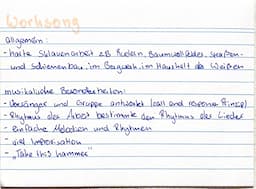 Worksong
allgemein:
- harte Sklavenarbeit zB Rudern, Baumwollfelder, Straßen-
und Schienenbau, im Bergwerk, im Haushalt der Weißen
musikalische Besonderheiten:
- Vorsänger und Gruppe antwortet (call and response Prinzip)
- Rhythmus der Arbeit bestimmte den Rhythmus der Lieder
- einfache Melodien und Rhythmen
- viel Improvisation
- „Take this hammer"